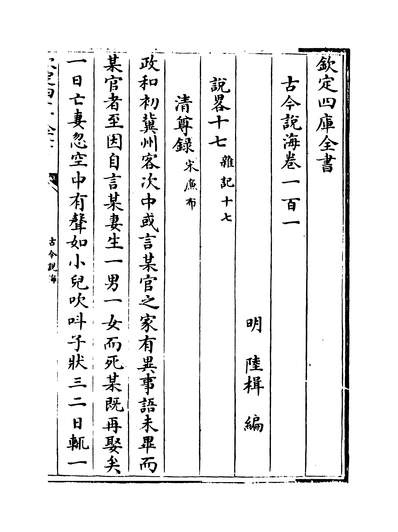 欽定四庫全書
古今說海卷一百一
明 陸楫 編
說畧十七 雜記十七
清尊錄 宋廉布
政和初冀州客次中或言某官之家有異事語未畢而
某官者至因自言某妻生一男一女而死某既再娶矣
一日亡妻忽空中有聲如小兒吹叫子狀三二日輒一
古今說海